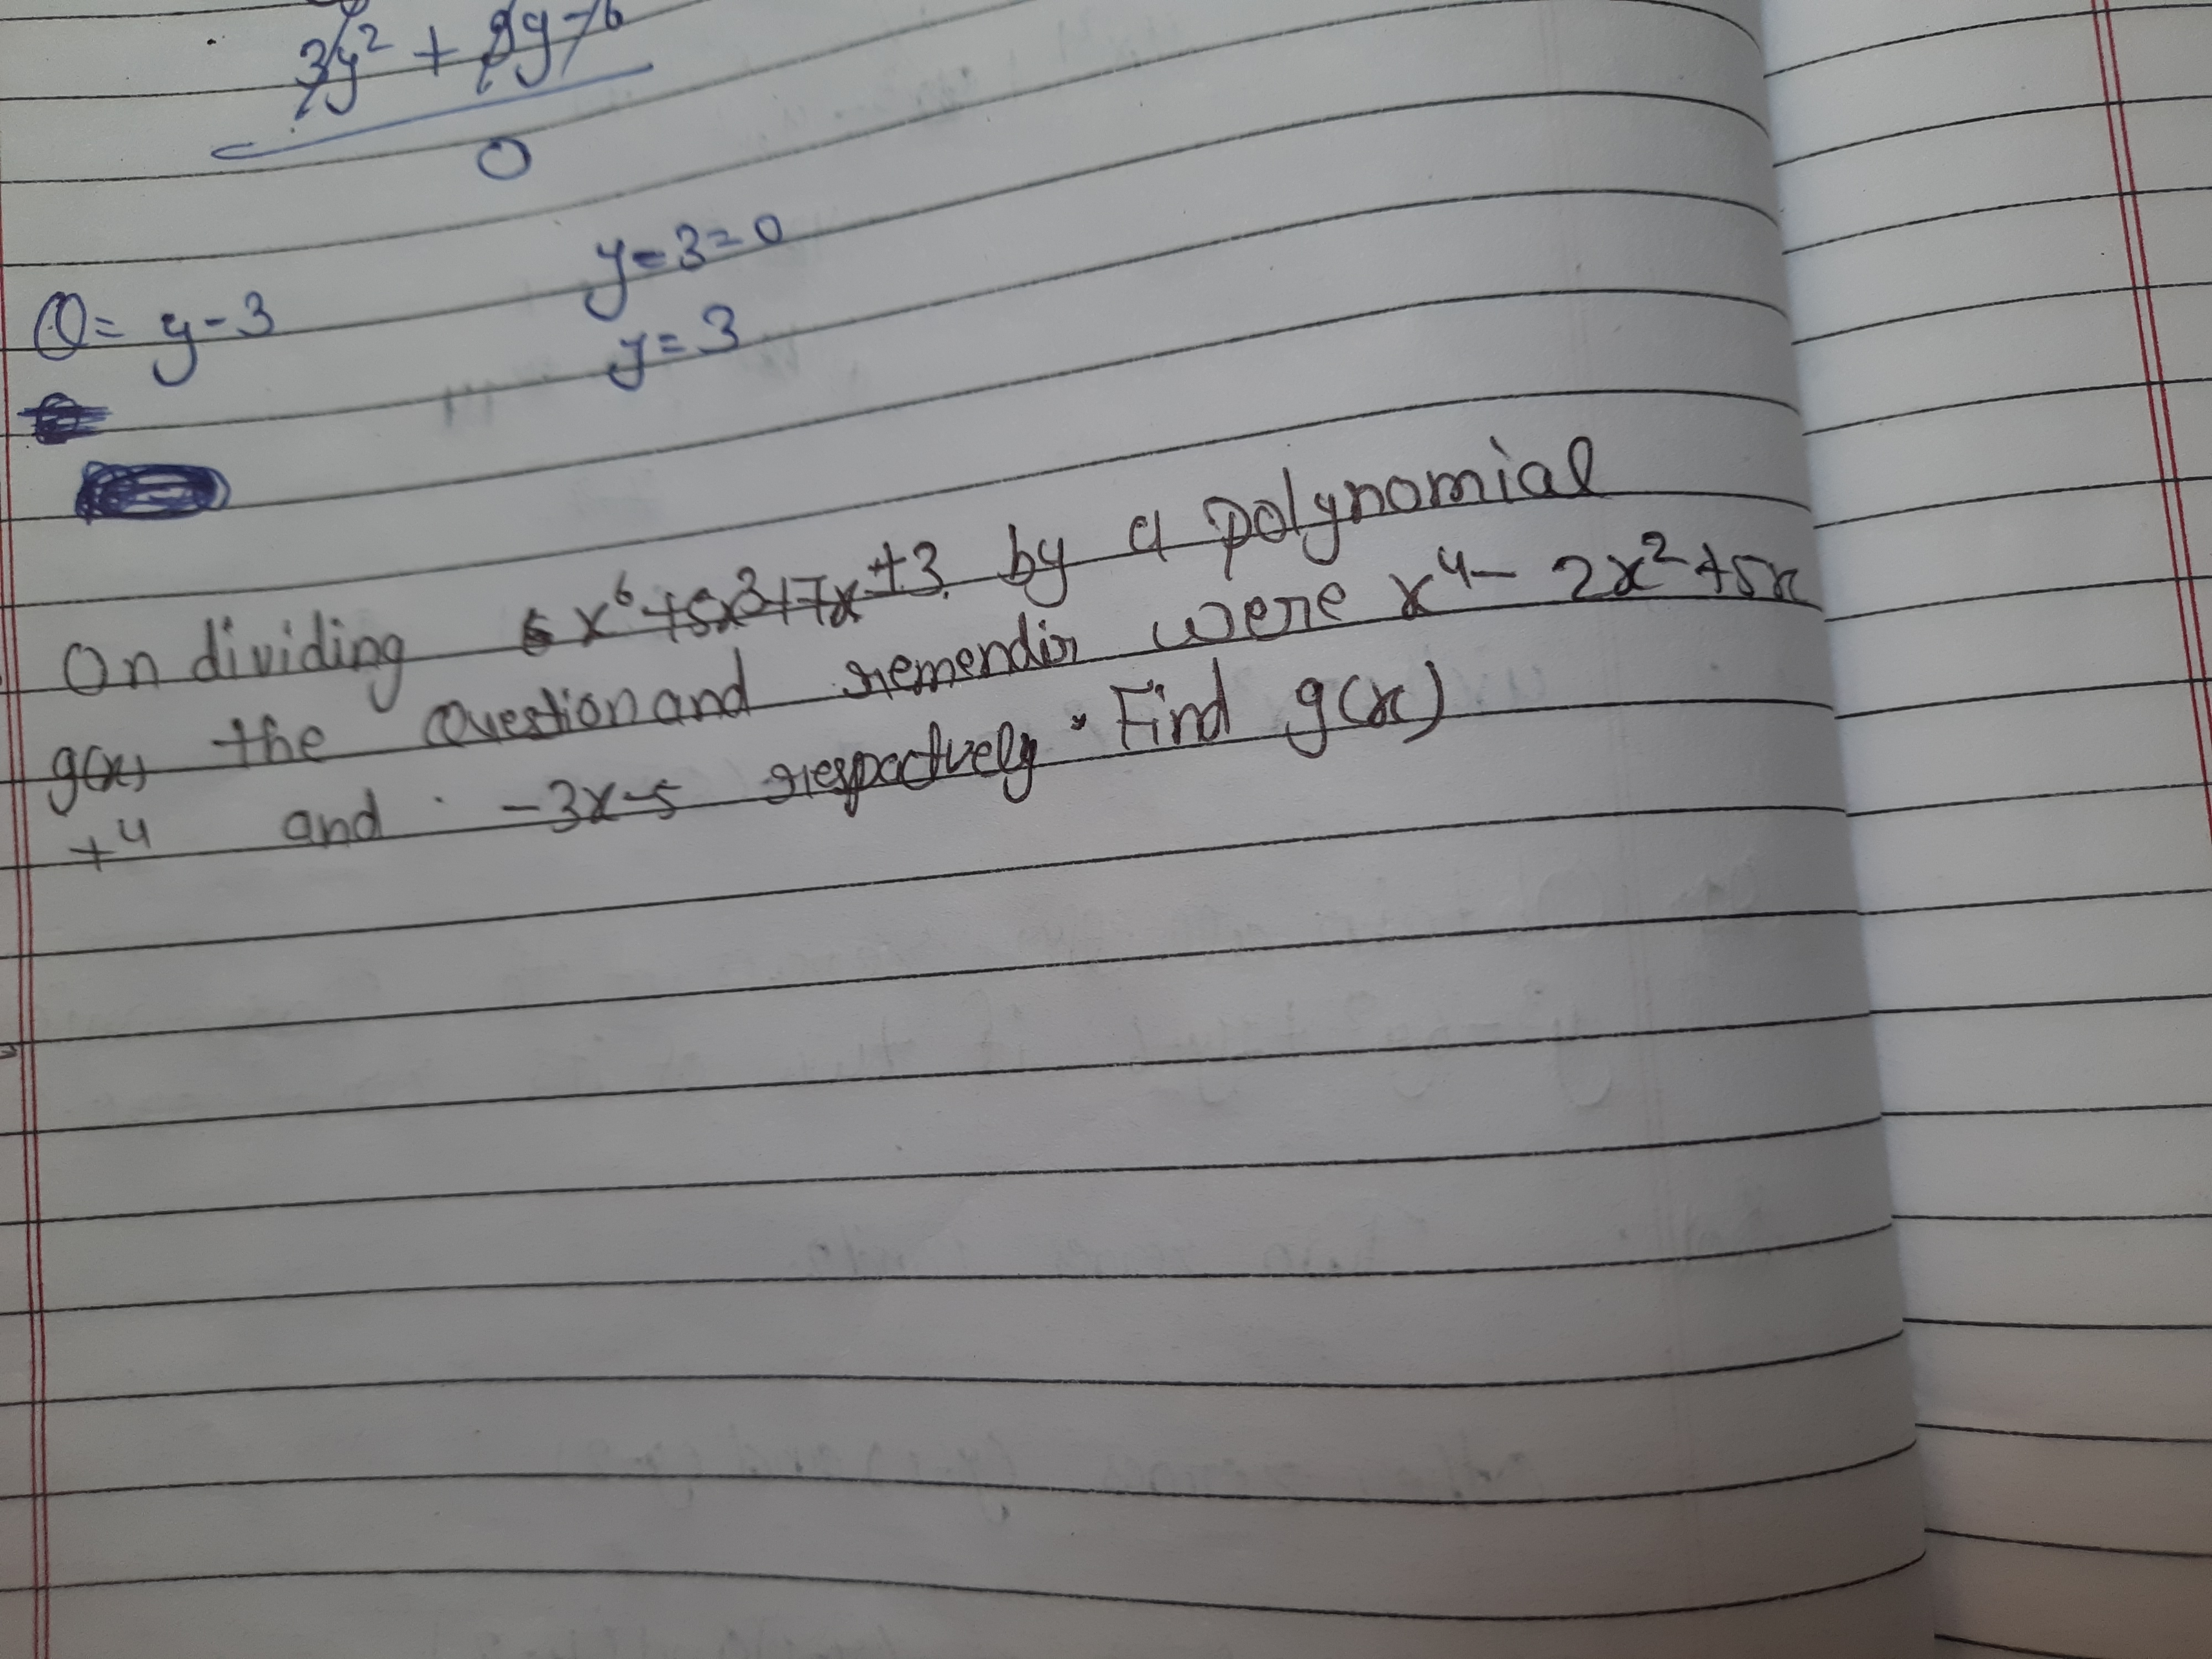 3y² + 9y-6
0
Q= y-3
y-3=0
y=3
On dividing x⁶+5x³+7x+3 by a polynomial
g(x) the Question and remendir were x⁴- 2x²+5x
+4 and -3x-5 respectvely. Find g(x)